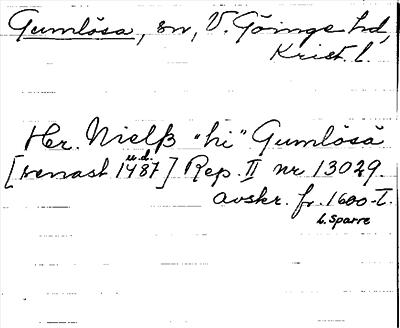 Gumlösa, sn, V. Göinge hd,
Krist. l.
Her. Nielß "hi" Gumlösä
[senast u.d. 1487] Rep. II nr 13029.
avskr. fr. 1600-t.
L. Sparre